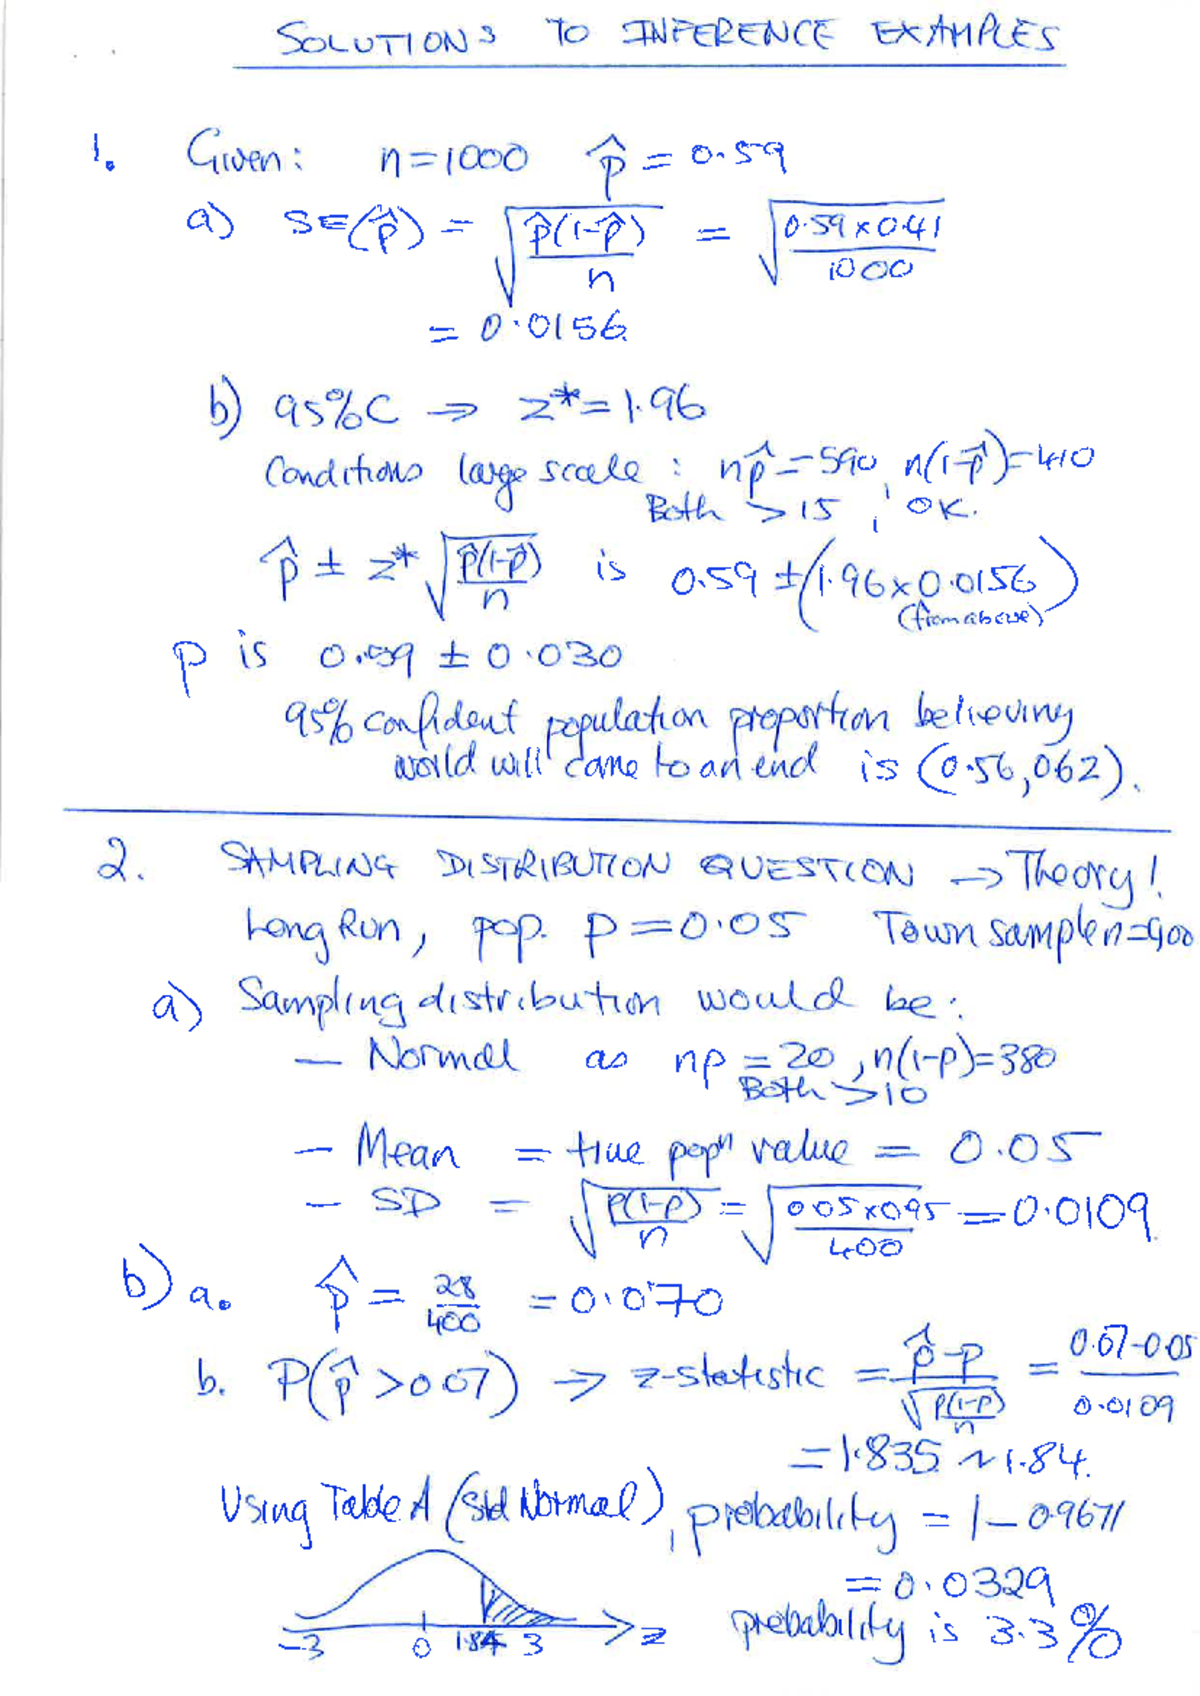 SOLUTIONS TO INFERENCE EXAMPLES
1. Given: n=1000 p̂ = 0.59
a) SE(p̂) = √(p̂(1-p̂)/n) = √(0.59×0.41/1000)
= 0.0156
b) 95%C ⇒ z*=1.96
Conditions large scale: np̂=590, n(1-p̂)=410
Both >15, OK.
p̂ ± z* √(p̂(1-p̂)/n) is 0.59 ±(1.96×0.0156)
(from above)
p is 0.59 ± 0.030
95% confident population proportion believing
world will come to an end is (0.56,062).
2. SAMPLING DISTRIBUTION QUESTION → Theory!
Long Run, pop. p=0.05 Town sample n=400
a) Sampling distribution would be:
– Normal as np = 20, n(1-p)=380
Both >10
– Mean = true popⁿ value = 0.05
– SD = √(p(1-p)/n) = √(0.05×0.95/400) = 0.0109
b) a. p̂ = 28/400 = 0.070
b. P(p̂ >0.07) → z-statistic = (p̂-p)/√(p(1-p)/n) = (0.07-0.05)/0.0109
= 1.835 ~ 1.84.
Using Table A (Std Normal), probability = 1 – 0.9671
= 0.0329
probability is 3.3%
-3 0 1.84 3 z